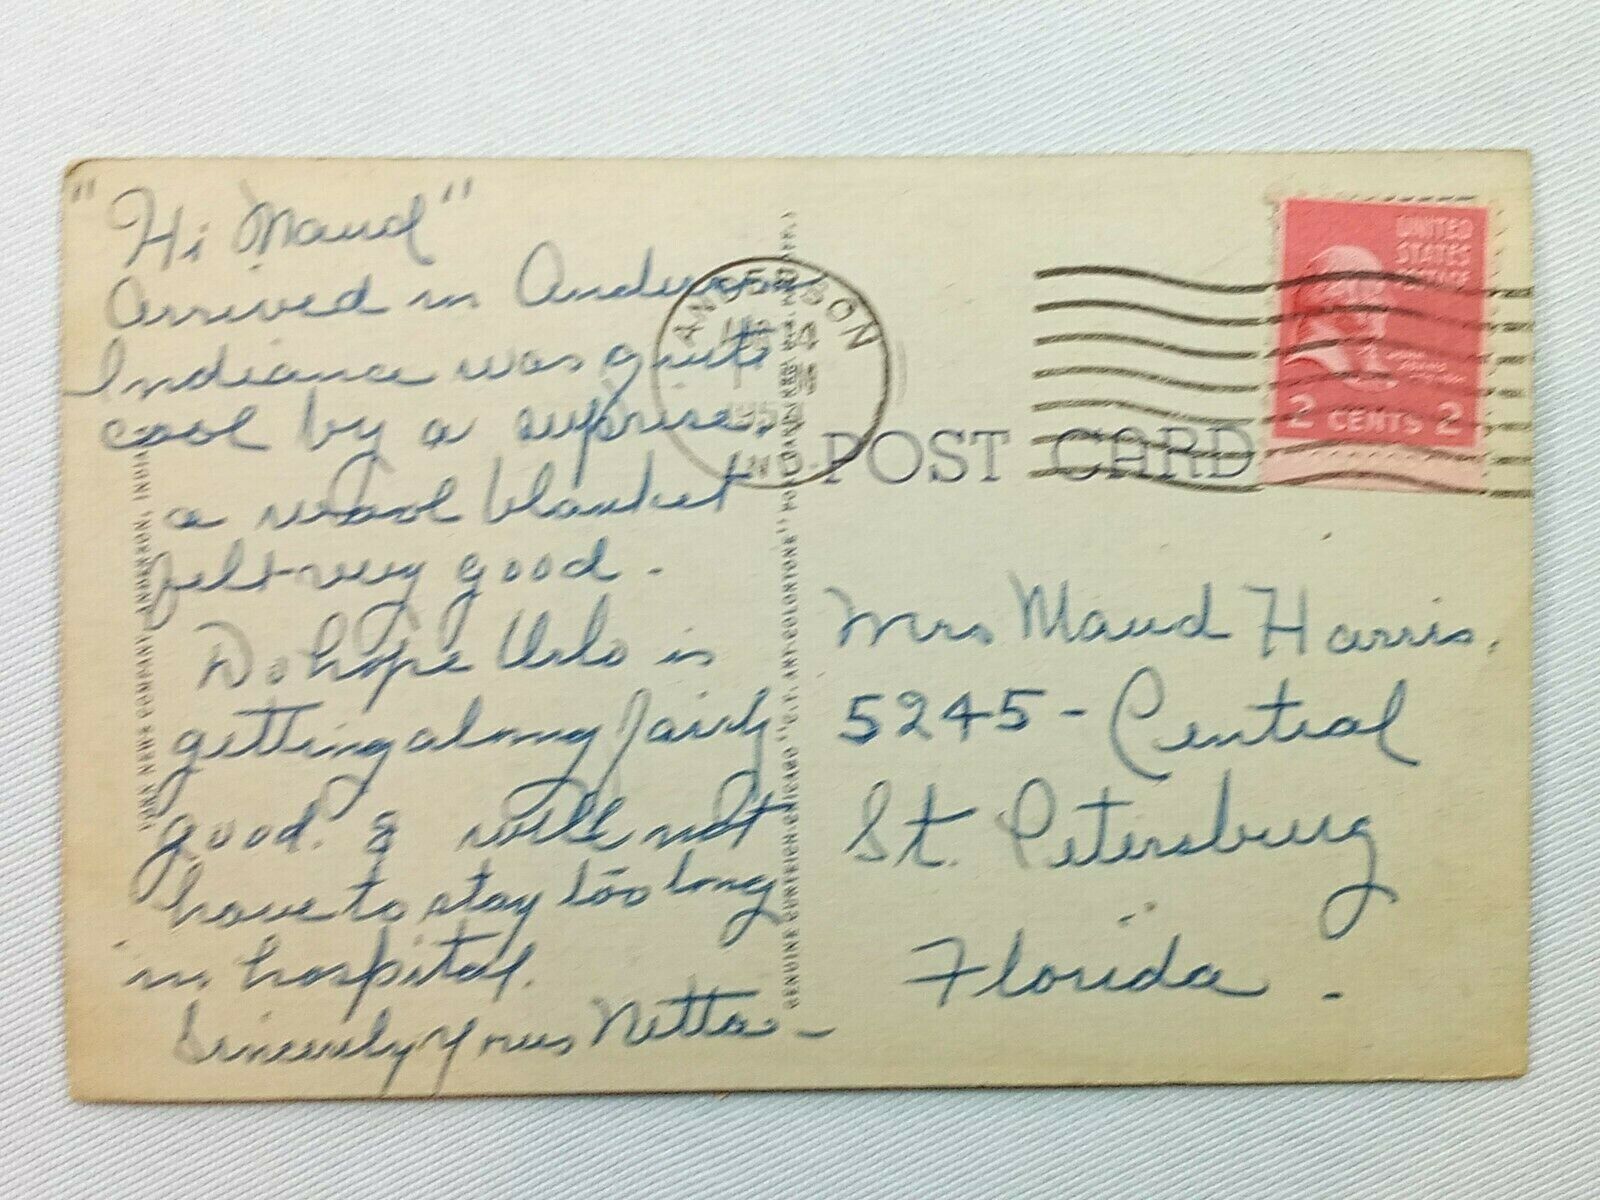 "Hi Maud"
Arrived in Anderson
Indiana was quite
cool by a surprise,
a wool blanket
felt very good.
Do hope Urlo is
getting along fairly
good. & will not
have to stay too long
in hospital.
Sincerely Yours Netta
FORK NEWS COMPANY, ANDERSON, INDIANA
GENUINE CURTEICH-CHICAGO "C.T. ART-COLORTONE" POST CARD (REG. U.S. PAT. OFF.)
ANDERSON
4
195
IND.
POST CARD
UNITED
STATES
POSTAGE
JOHN
ADAMS
2 CENTS 2
Mrs Maud Harris.
5245 - Central
St. Petersburg
Florida.